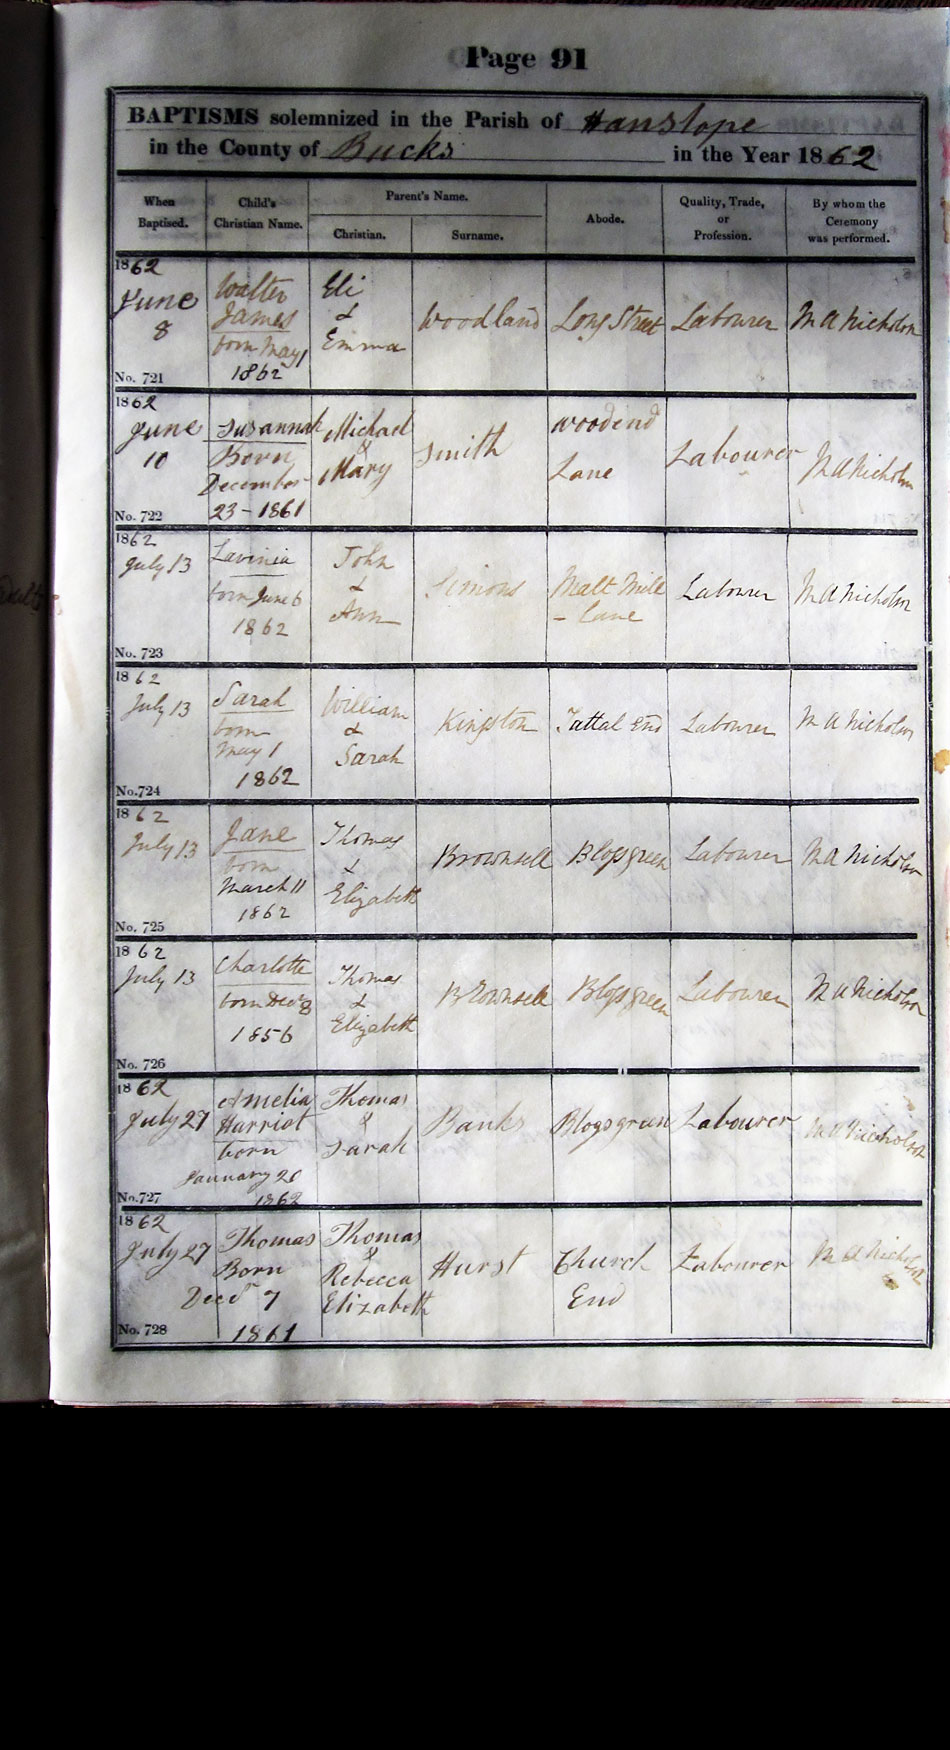 Page 91
BAPTISMS solemnized in the Parish of Hanslope
in the County of Bucks in the Year 1862
When Baptised.
Child's Christian Name.
Parent's Name.
Christian.
Surname.
Abode.
Quality, Trade, or Profession.
By whom the Ceremony was performed.
1862
June 8
No. 721
Walter
James
born May 1
1862
Eli
&
Emma
Woodland
Long Street
Labourer
M A Nicholson
1862
June 10
No. 722
Susannah
Born
December
23 - 1861
Michael
&
Mary
Smith
Woodend
Lane
Labourer
M A Nicholson
1862
July 13
No. 723
Lavinia
born June 6
1862
John
&
Ann
Simons
Malt Mill
- Lane
Labourer
M A Nicholson
1862
July 13
No. 724
Sarah
born
May 1
1862
William
&
Sarah
Kingston
Tattal End
Labourer
M A Nicholson
1862
July 13
No. 725
Jane
born
March 11
1862
Thomas
&
Elizabeth
Brownsell
Blogsgreen
Labourer
M A Nicholson
1862
July 13
No. 726
Charlotte
born Decr 8
1856
Thomas
&
Elizabeth
Brownsell
Blogsgreen
Labourer
M A Nicholson
1862
July 27
No. 727
Amelia
Harriot
born
January 20
1862
Thomas
&
Sarah
Banks
Blogsgreen
Labourer
M A Nicholson
1862
July 27
No. 728
Thomas
Born
Decr 7
1861
Thomas
&
Rebecca
Elizabeth
Hurst
Church
End
Labourer
M A Nicholson